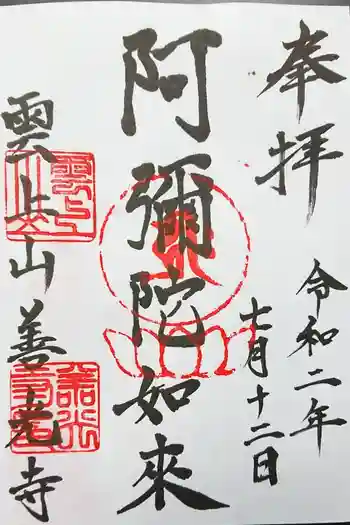 奉拝
令和二年
十月十二日
阿彌陀如來
雲上山善光寺